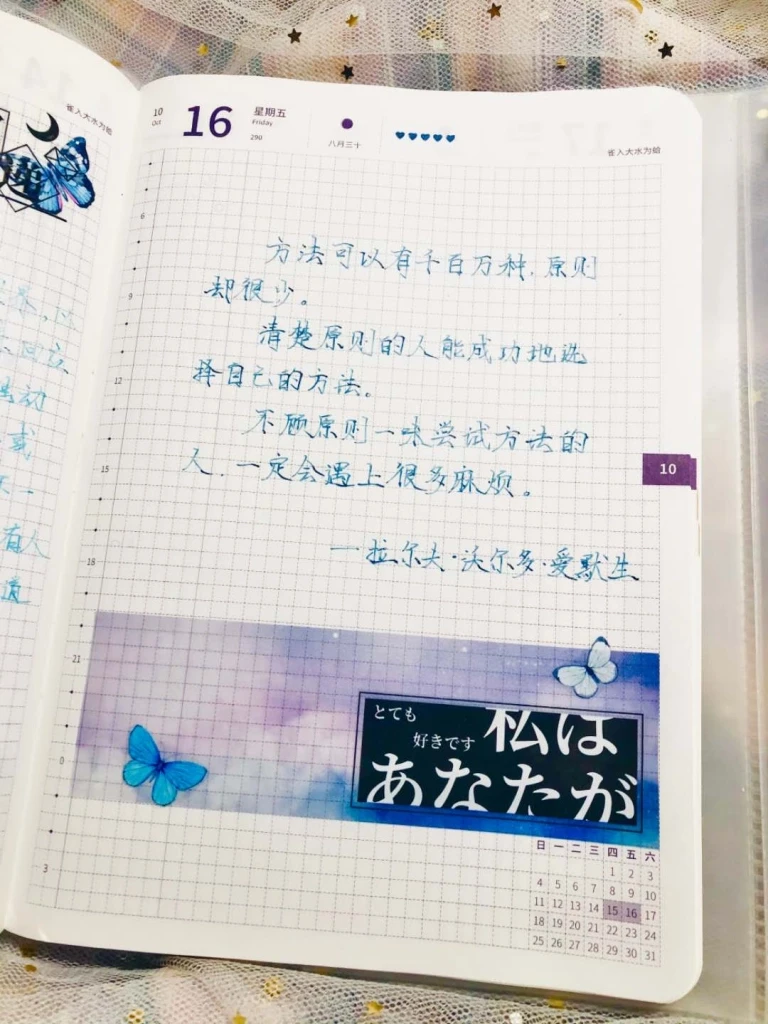 雀入大水为蛤
10
Oct
16
星期五
Friday
290
八月三十
雀入大水为蛤
6
9
12
15
18
21
0
3
方法可以有千百万种，原则
却很少。
清楚原则的人能成功地选
择自己的方法。
不顾原则一味尝试方法的
人，一定会遇上很多麻烦。
—拉尔夫·沃尔多·爱默生
10
とても
好きです
私は
あなたが
日 一 二 三 四 五 六
1 2 3
4 5 6 7 8 9 10
11 12 13 14 15 16 17
18 19 20 21 22 23 24
25 26 27 28 29 30 31
有人